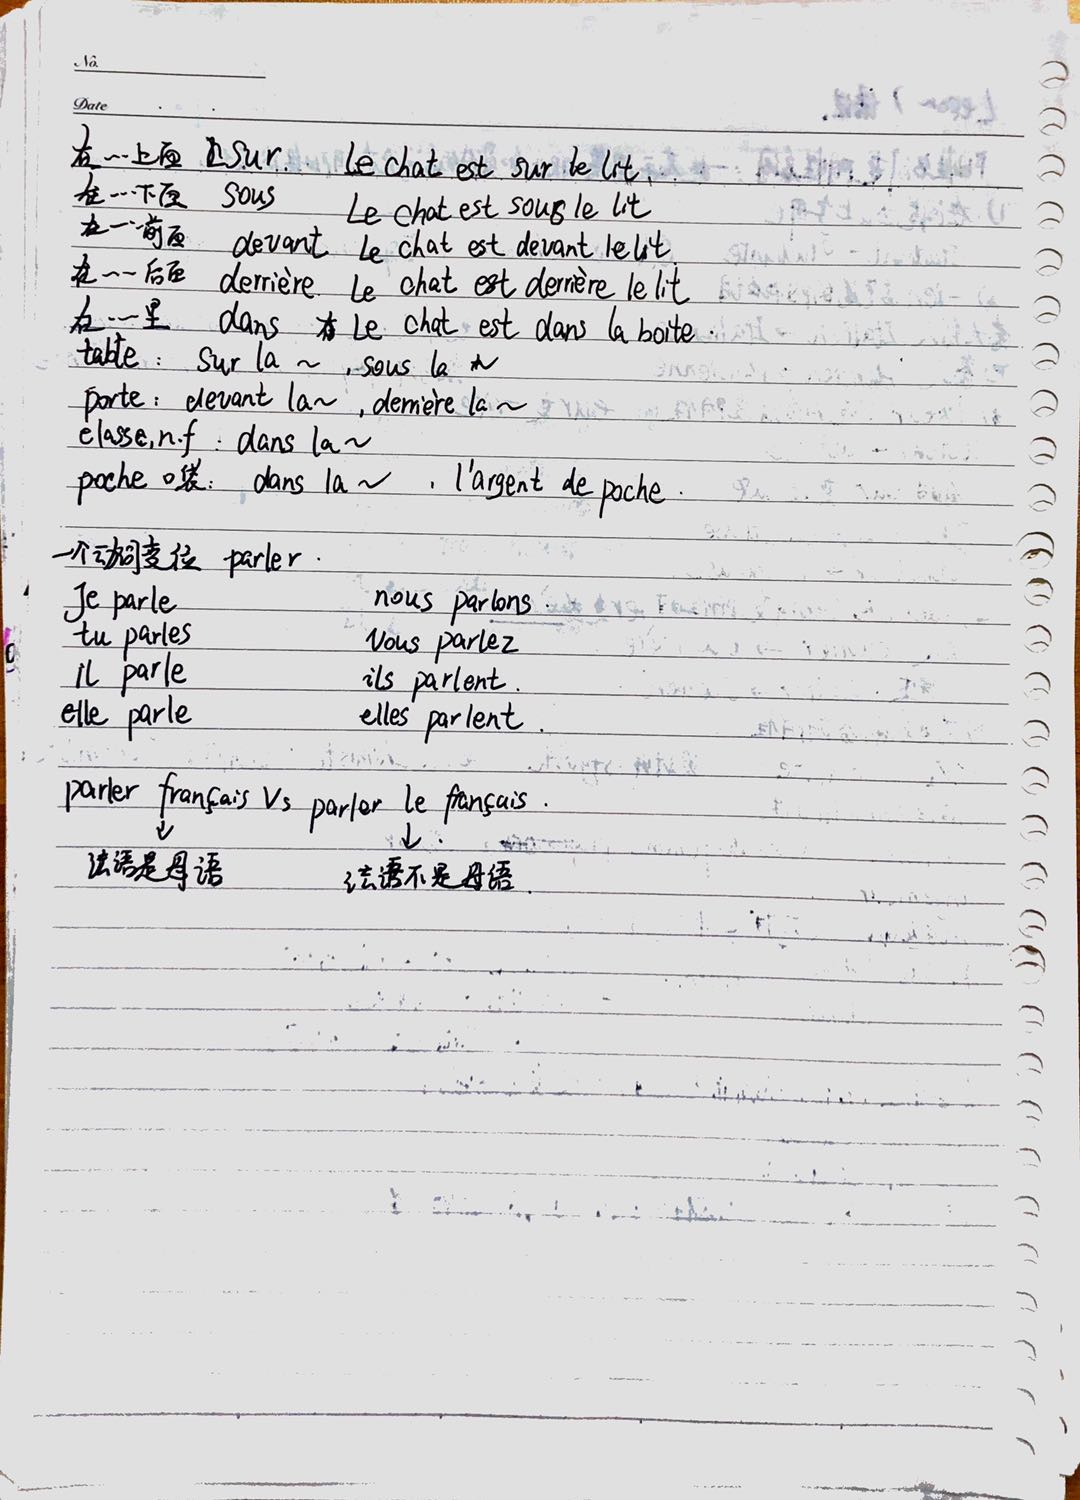 No.
Date
在…上面 sur. Le chat est sur le lit.
在…下面 sous Le chat est sous le lit
在…前面 devant Le chat est devant le lit
在…后面 derrière Le chat est derrière le lit
在…里 dans Le chat est dans la boite.
table: sur la ~, sous la ~
porte: devant la ~, derrière la ~
classe, n.f: dans la ~
poche 口袋: dans la ~. l'argent de poche.
一个动词变位 parler.
Je parle nous parlons.
tu parles Vous parlez
il parle ils parlent.
elle parle elles parlent.
parler français Vs parler le français.
↓ ↓
法语是母语 法语不是母语.